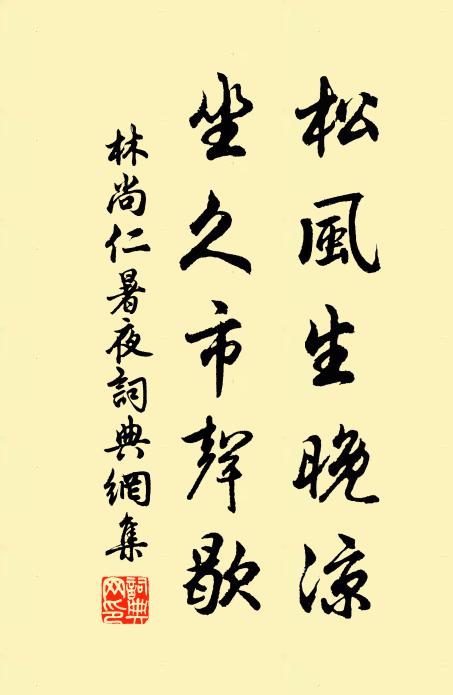 松風生晚涼
坐久市聲歇
林尚仁暑夜詞典網集
詞典網印